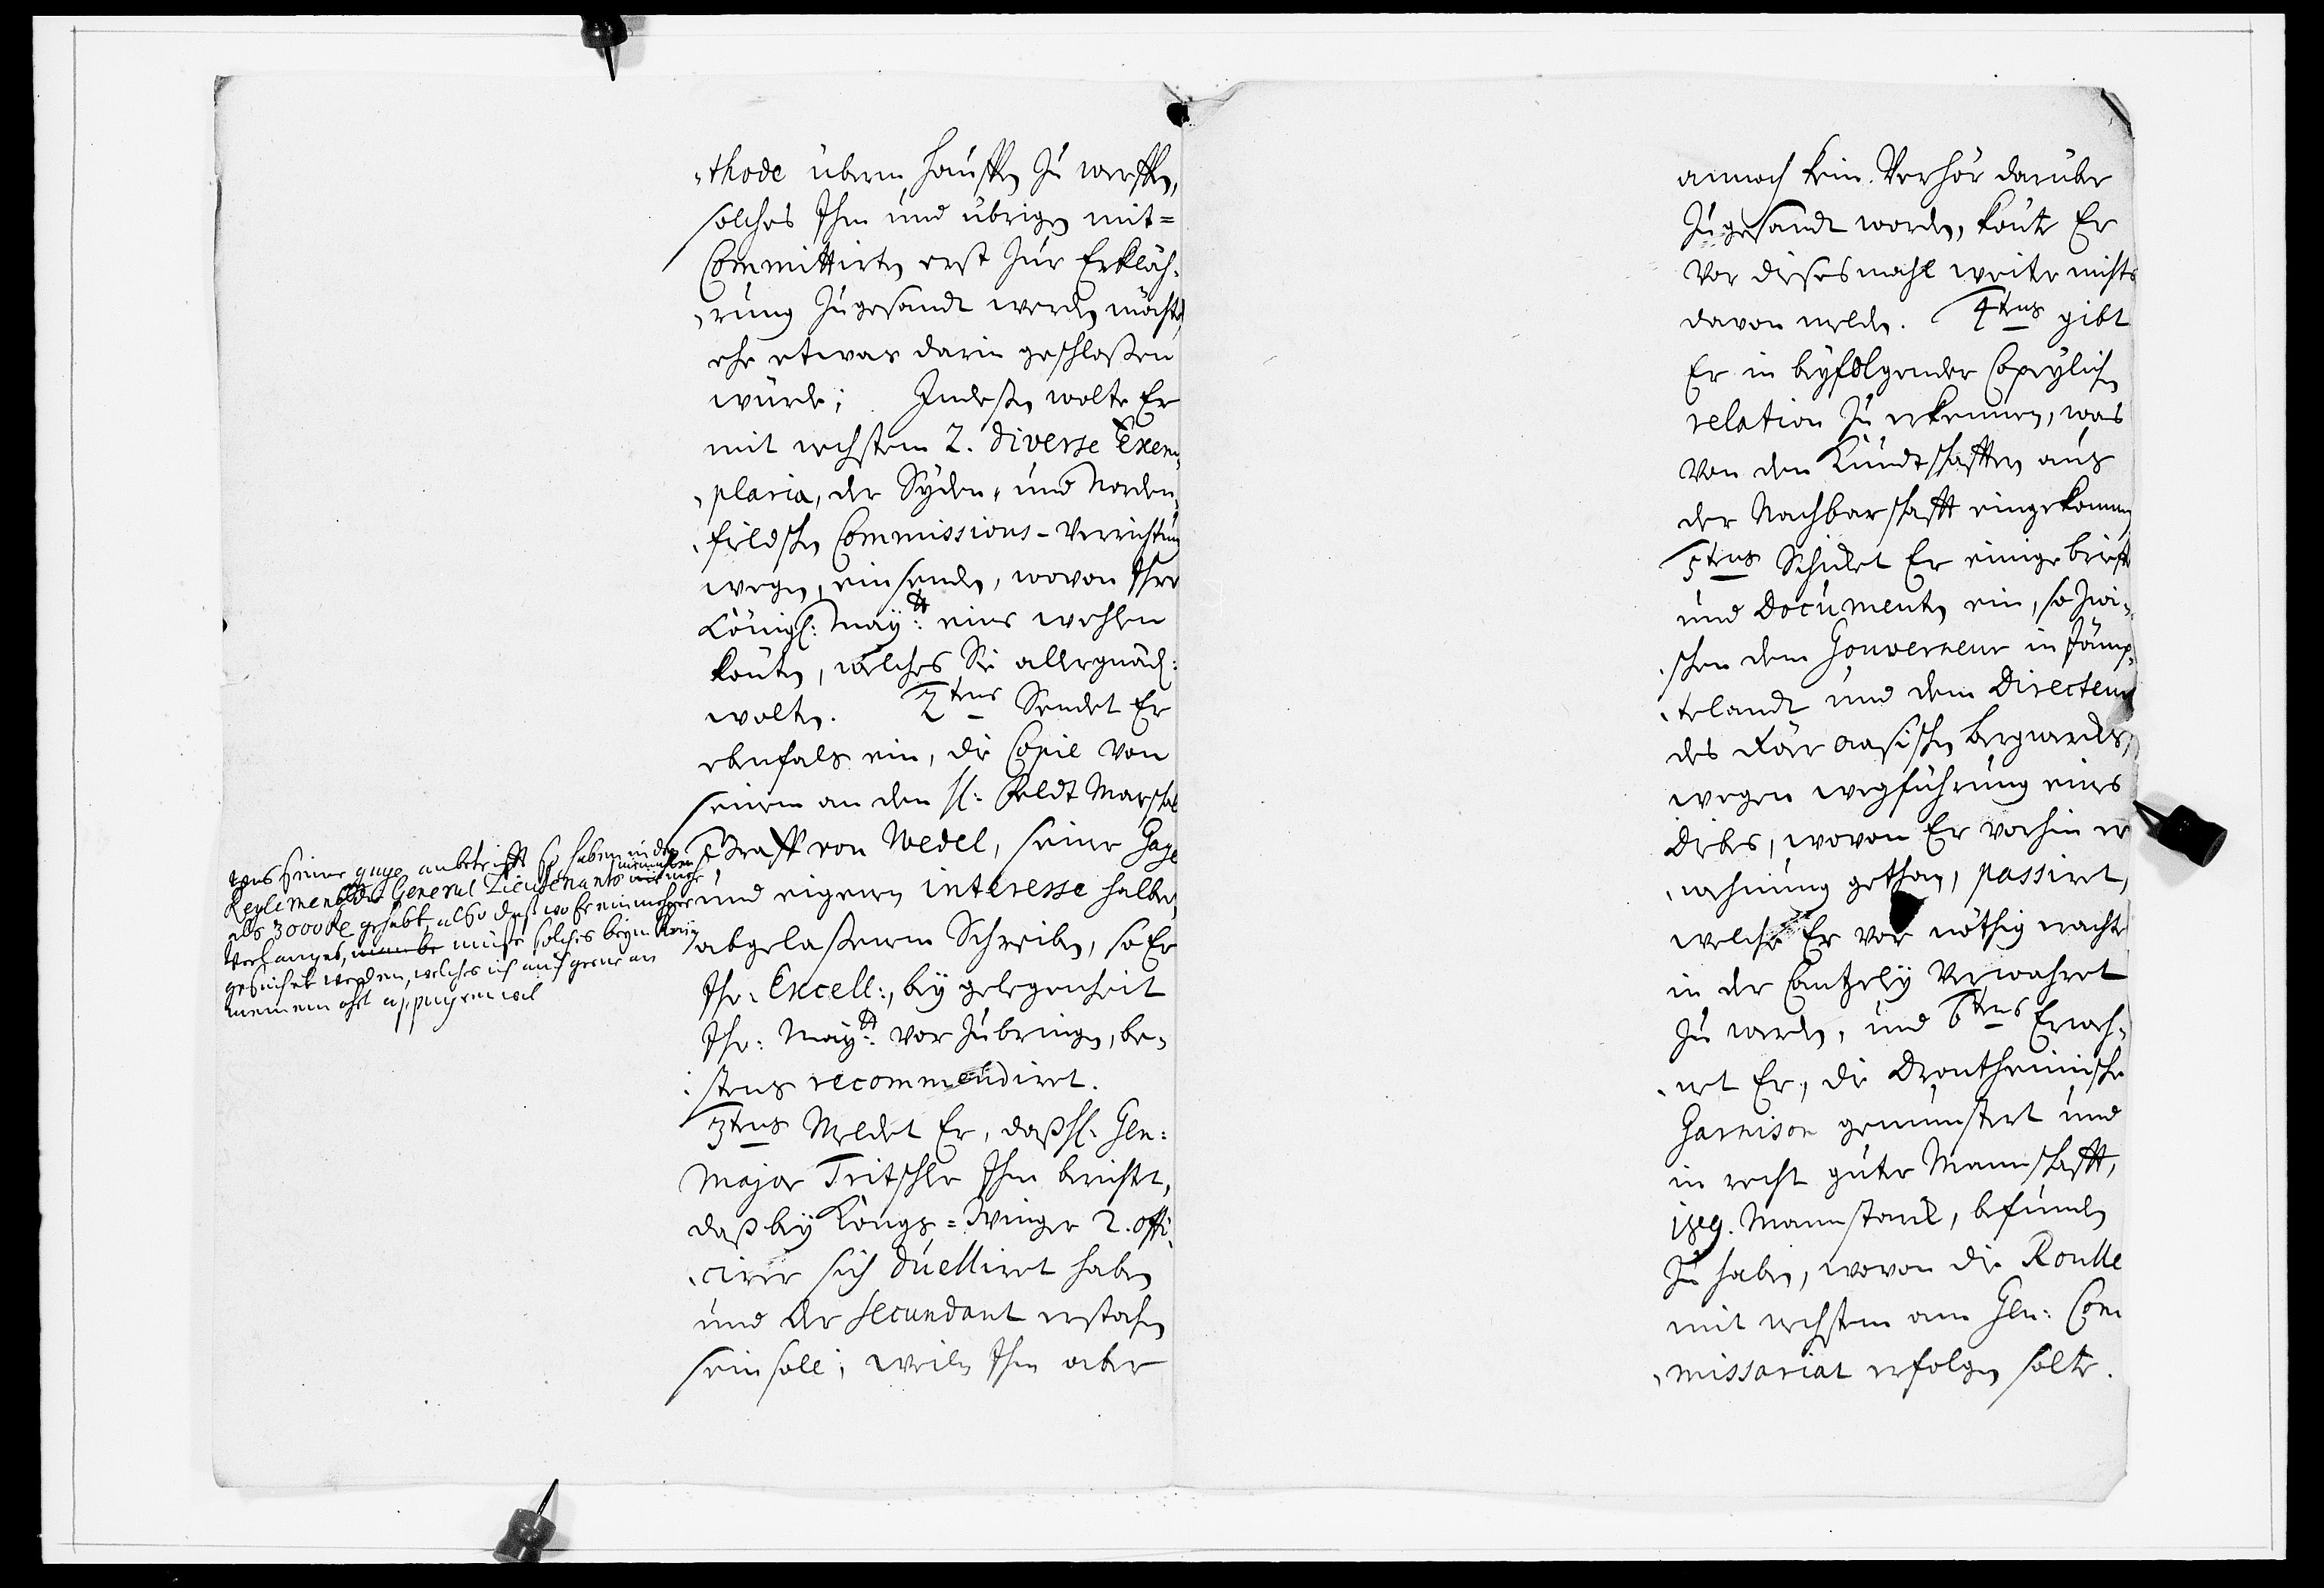 thode überm hauffen zu werffen,
solches Ihm und übrigen mit=
Committirten erst zur Erkläh¬
rung zugesandt werden möchte
ehe etwas darin geschloßen
würde; Indeßen wolte Er
mit nechstem 2. diverse Exem¬
plaria, der Syden- und Norden¬
fieldschen Commissions-Verrichtung
wegen, einsenden, wovon Ihre
Königl: Maytt: eins wehlen
könten, welches Sie allergnäd:
wolten. 2tens Sendet Er
ebenfals ein, die Copie von
seinem an den H: Feldt Marschal
Graff von Wedel, seine Gage
und eigenen interesse halber,
abgelaßenem Schreiben, so Er
Ihr: Excell:, bey gelegenheit
Ihr: Maytt: vor zubringen, be¬
stens recommendiret.
3tens Meldet Er, daß H. Gen:
Major Tritschler Ihm berichtet,
daß bey Kongs=Winger 2. offi¬
cirer sich duelliret haben
und der Secundant erstochen
sein soll; weilen Ihm aber
was seine gage anbetrifft so haben in dem
Reglement die General Lieutenants niemahlen mehr
als 3000 gehabt, also daß wo Er ein mehrers
verlanget, müste solches beym König
gesuchet werden, welches ich auch gerne an
meinem ohrt appuyren wil
annoch kein Verhör darüber
zugesandt worden, könte Er
vor dieses mahl weiter nichts
davon melden. 4tens gibt
Er in beyfolgender Copeylichen
relation zu erkennen, was
von den Kundtschafften aus
der Nachbarschafft eingekommen
5tens Schicket Er einige brieffe
und Documenten ein, so zwi¬
schen dem Gouverneur in Jämp¬
telandt und dem Directeur
des Röraasischen bergwercks,
wegen wegführung eines
Diebes, wovon Er vorhin er
wehnung gethan, passiret,
welche Er vor nöthig erachtet
in der Cantzeley Verwahret
zu werden, und 6tens Erweh¬
net Er, die Drontheimische
Garnison gemunstert und
in recht guter Mannschafft,
Mann starck, befunden
zu haben, wovon die Roulle
mit nechstem am Gen: Com
missariat erfolgen solte.